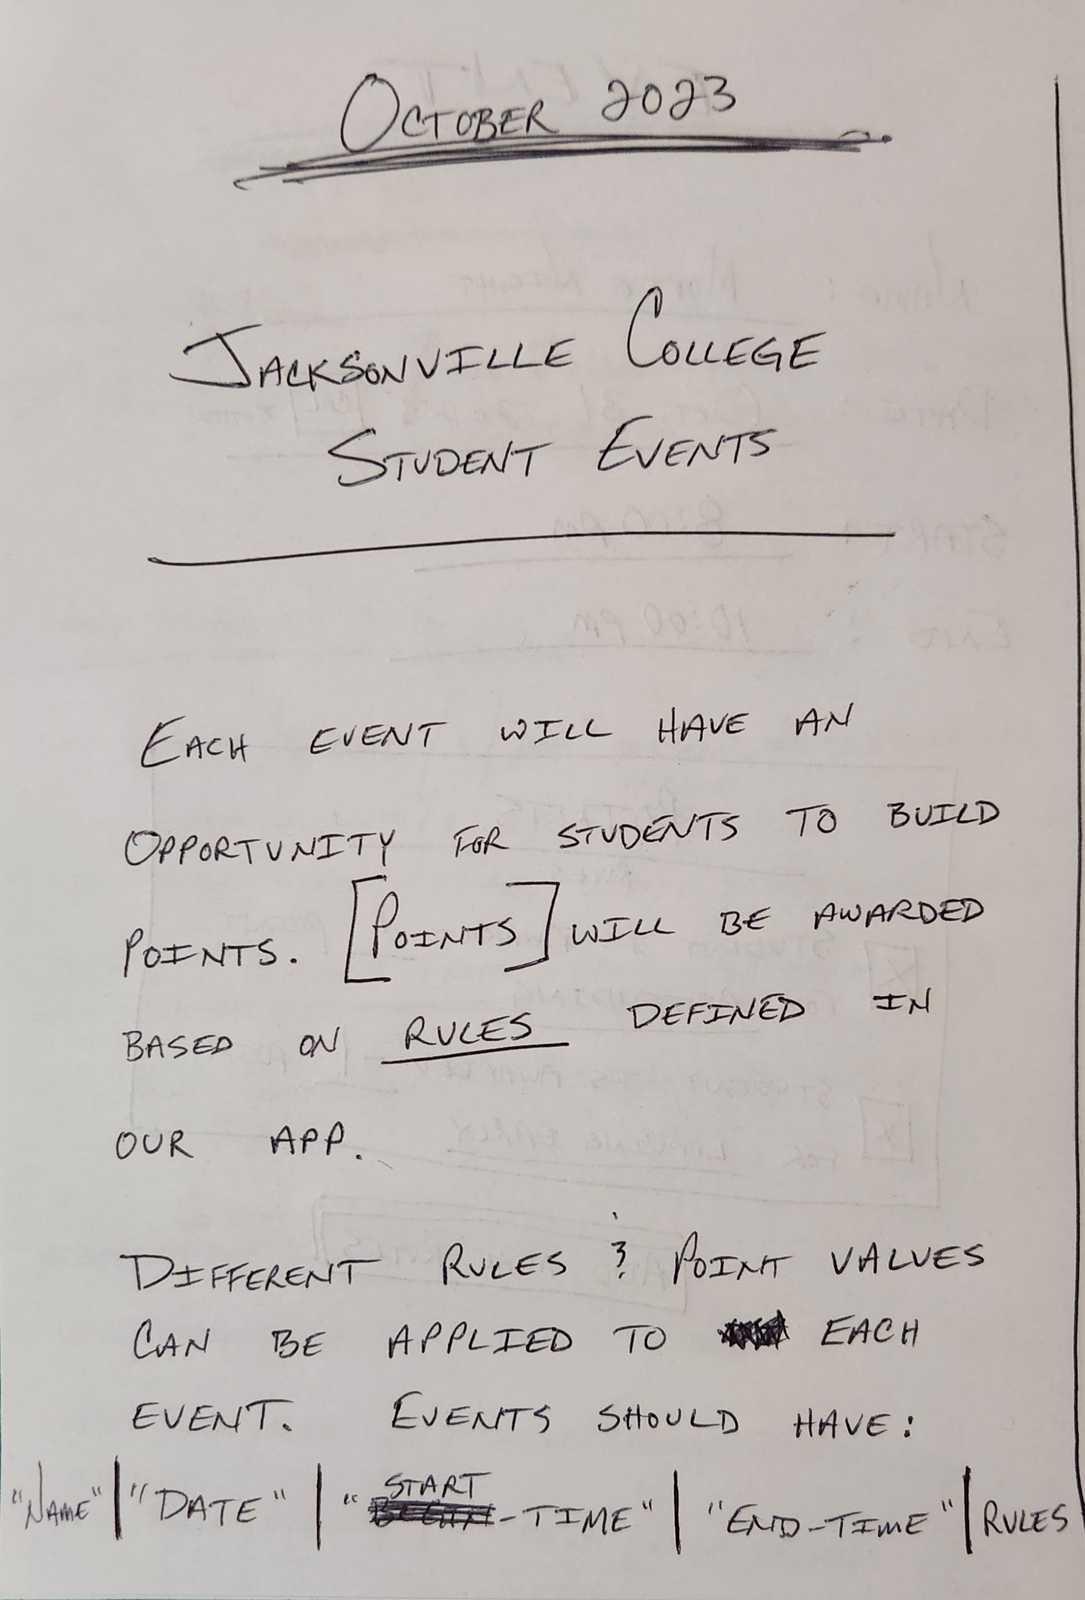 OCTOBER 2023
JACKSONVILLE COLLEGE
STUDENT EVENTS
EACH EVENT WILL HAVE AN
OPPORTUNITY FOR STUDENTS TO BUILD
POINTS. [POINTS] WILL BE AWARDED
BASED ON RULES DEFINED IN
OUR APP.
DIFFERENT RULES & POINT VALUES
CAN BE APPLIED TO EACH
EVENT. EVENTS SHOULD HAVE:
"NAME" | "DATE" | "START-TIME" | "END-TIME" | RULES